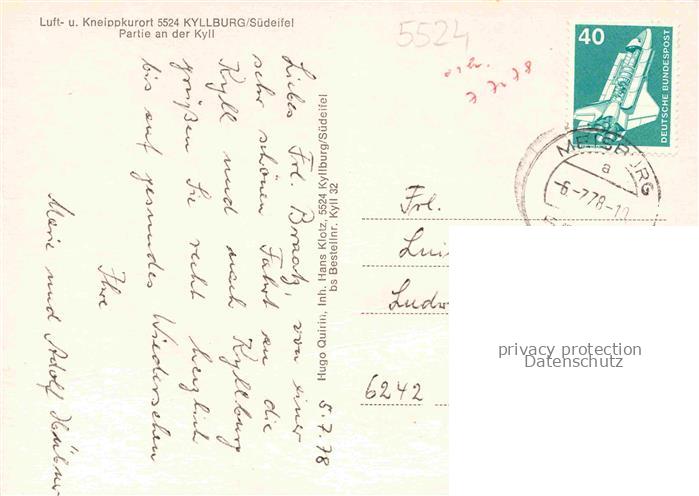 Luft- u. Kneippkurort 5524 KYLLBURG/Südeifel
Partie an der Kyll
5524
7.7.78
40
DEUTSCHE BUNDESPOST
MEISBURG
a
-6.-7.78-10
Liebes Frl. Braatz, von einer
sehr schönen Fahrt an die
Kyll und nach Kyllburg
grüßen Sie recht herzlich
bis auf gesundes Wiedersehen
Ihre
Marie und Adolf Hübner
5.7.78
Hugo Quirin, Inh. Hans Klotz, 5524 Kyllburg/Südeifel
bs Bestellnr. Kyll 32
Frl.
Luis
Ludw
6242
privacy protection
Datenschutz